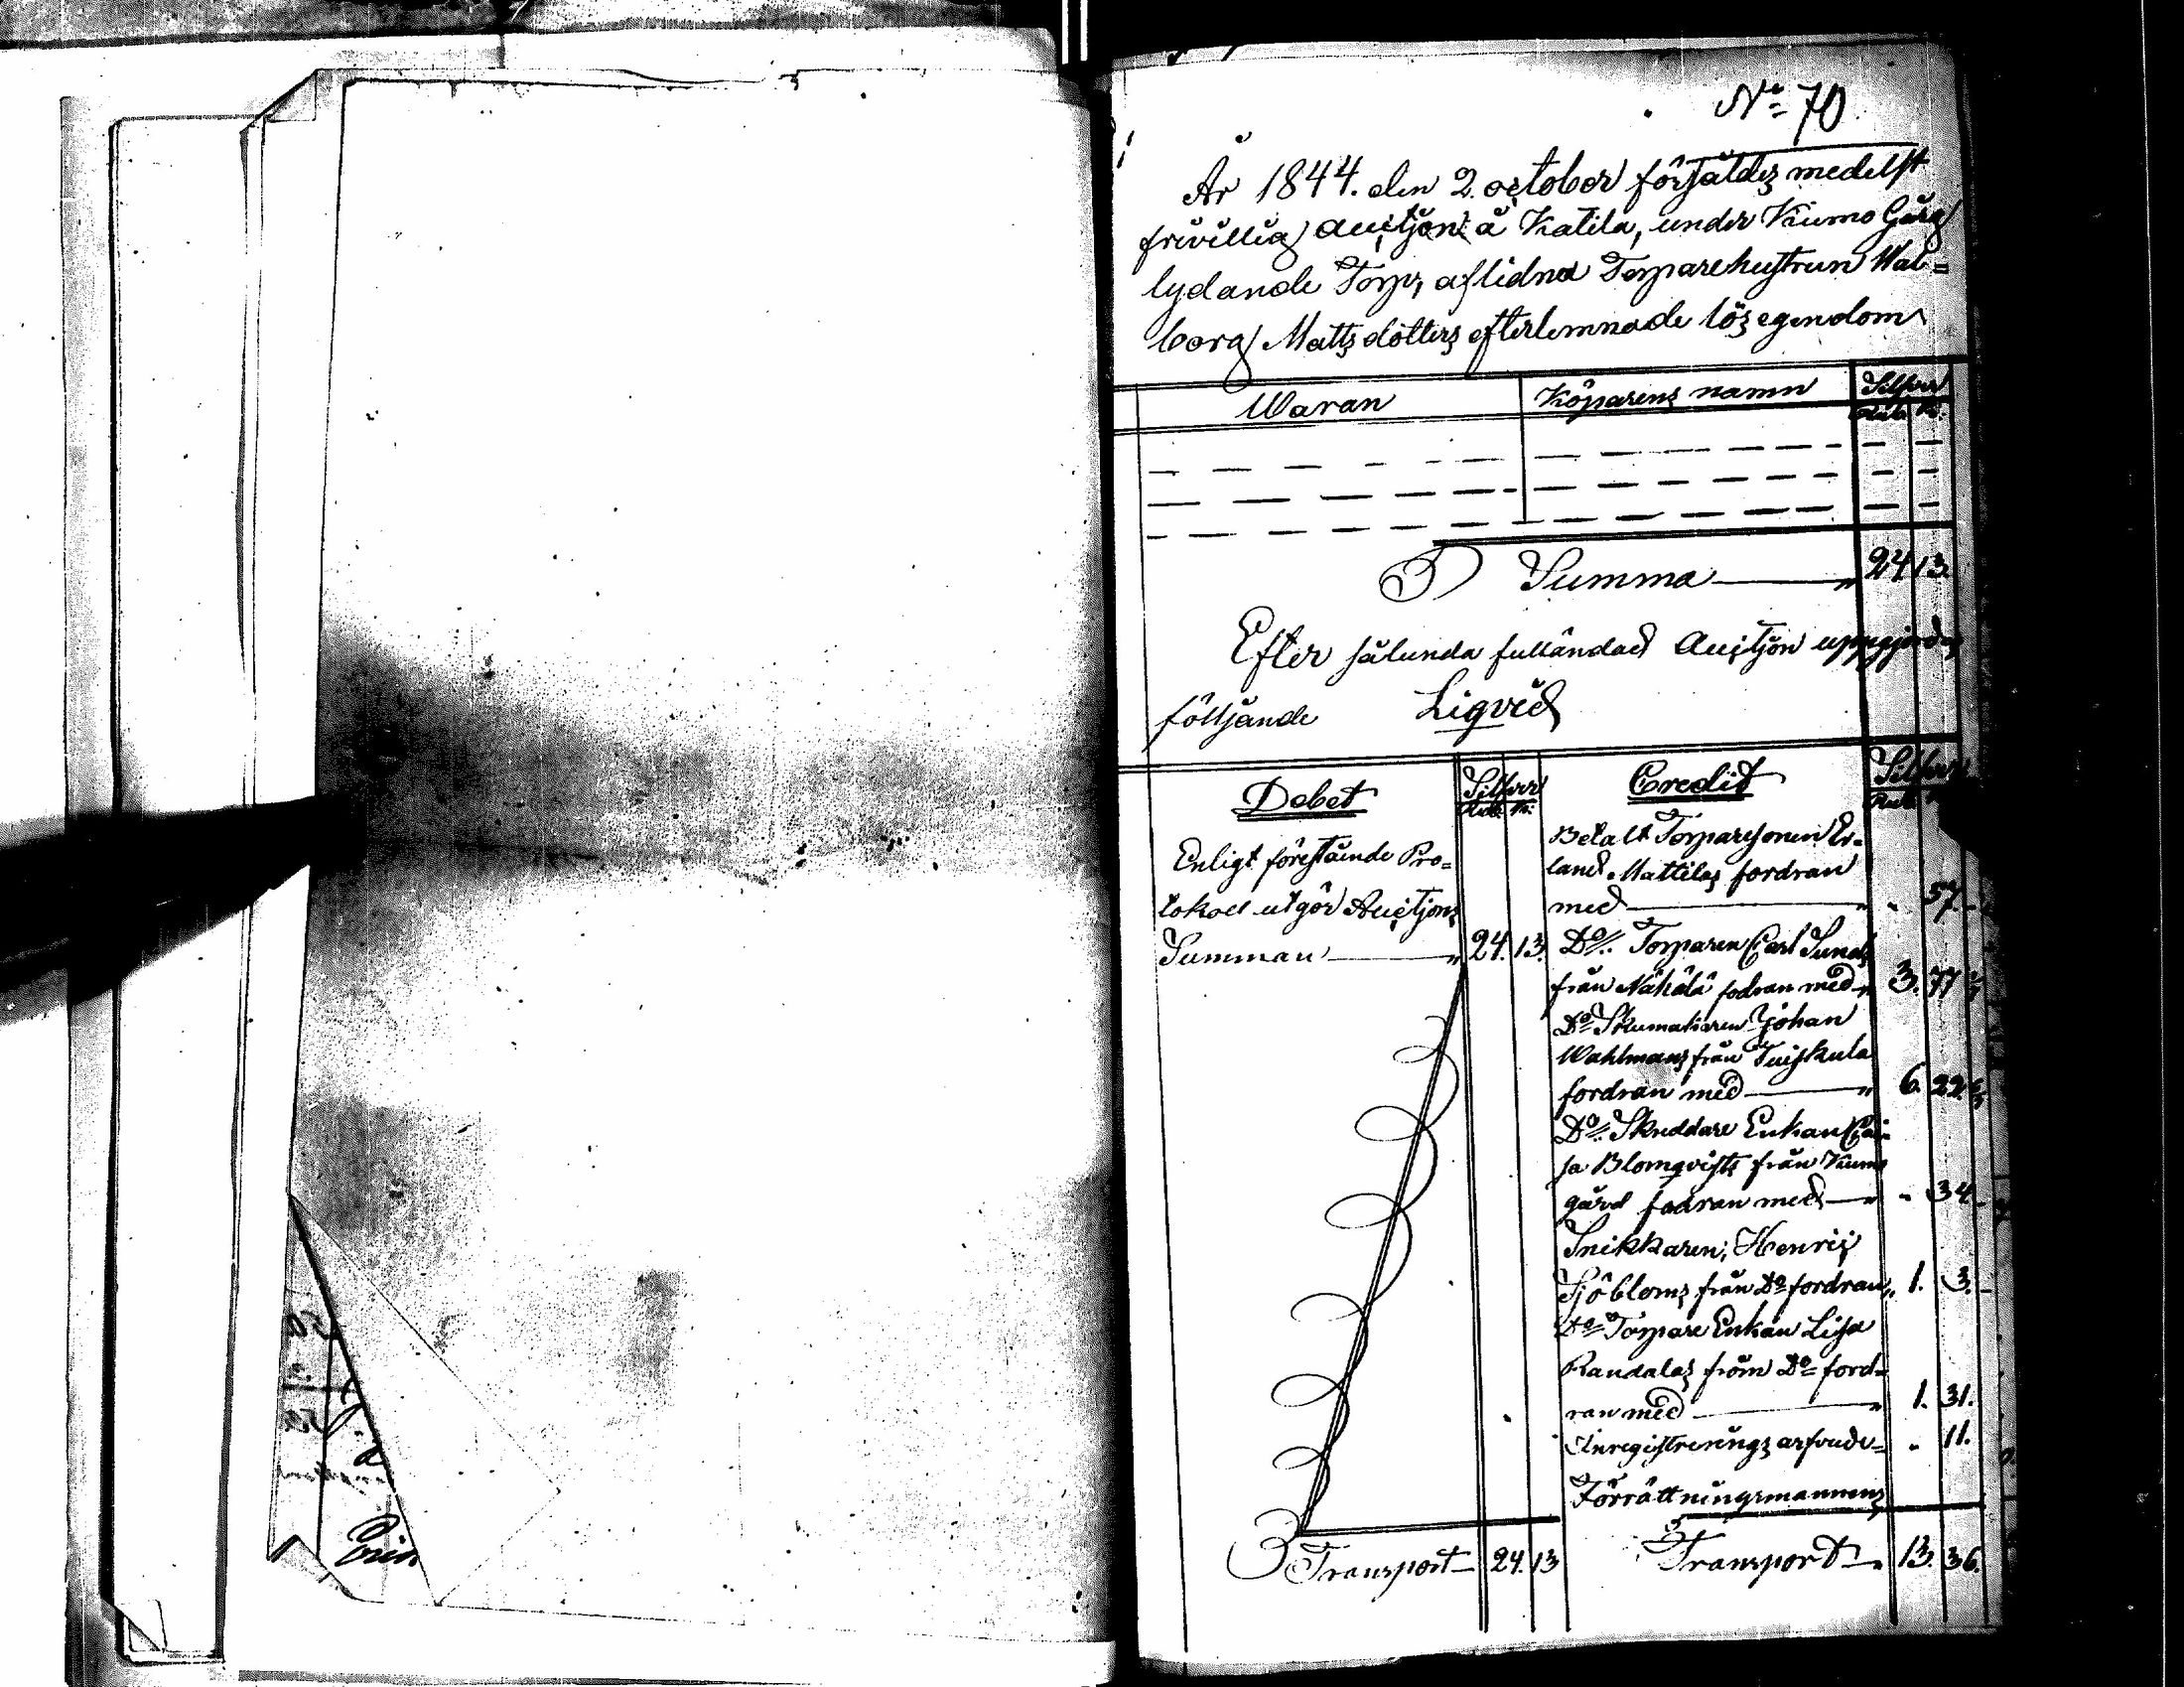 No 70
År 1844. den 2. october försåldes medelst
frivillig auctjon å Katila, under Kiumo Gård
lydande Torp, aflidna Torparehustrun Wal=
borg Mattsdotters efterlemnade lösegendom
Waran Köparens namn Silfver
Rub. K.
Summa 24 13.
Efter sålunda fulländad Auctjon uppgjordes
följande Liqvid
Debet Silfver Credit Silfver
Rub. K. Rub.
Enligt förestående Pro=
tokoll utgör Auctjons
Summan 24. 13.
Transport 24. 13
Betalt Torparesonen Er-
land Mattilas fordran
med " 57. -
Do. Torparen Carl Sunds
från Nähälä fodran med 3. 77
Do Johan
Wahlmans från Tuiskula
fordran med 6. 22.
Do. Skreddare Enkan
sa Blomqvists från Kiumo
gård fodran med " 34. -
Snikkaren, Henric
Sjöbloms från Do fordran 1. 3. -
Do Torpare Enkan Lisa
Randalas från Do ford-
ran med 1. 31.
Inregistrerings arfvode= " 11.
Förrättningsmannens
Transport 13. 36.